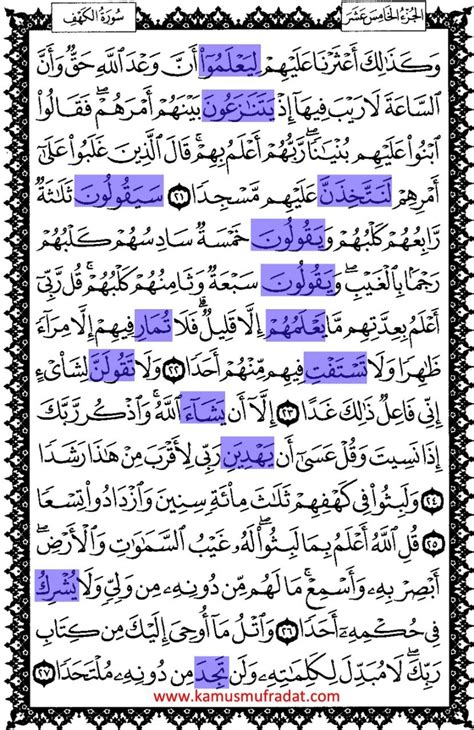 سُورَةُ الكَهْفِ الجُزْءُ الخَامِسَ عَشَرَ
وَكَذَٰلِكَ أَعْثَرْنَا عَلَيْهِمْ لِيَعْلَمُوٓا۟ أَنَّ وَعْدَ ٱللَّهِ حَقٌّ وَأَنَّ
ٱلسَّاعَةَ لَا رَيْبَ فِيهَآ إِذْ يَتَنَٰزَعُونَ بَيْنَهُمْ أَمْرَهُمْ ۖ فَقَالُوا۟
ٱبْنُوا۟ عَلَيْهِم بُنْيَٰنًا ۖ رَّبُّهُمْ أَعْلَمُ بِهِمْ ۚ قَالَ ٱلَّذِينَ غَلَبُوا۟ عَلَىٰٓ
أَمْرِهِمْ لَنَتَّخِذَنَّ عَلَيْهِم مَّسْجِدًا ٢١ سَيَقُولُونَ ثَلَٰثَةٌ
رَّابِعُهُمْ كَلْبُهُمْ وَيَقُولُونَ خَمْسَةٌ سَادِسُهُمْ كَلْبُهُمْ
رَجْمًۢا بِٱلْغَيْبِ ۖ وَيَقُولُونَ سَبْعَةٌ وَثَامِنُهُمْ كَلْبُهُمْ ۚ قُل رَّبِّىٓ
أَعْلَمُ بِعِدَّتِهِم مَّا يَعْلَمُهُمْ إِلَّا قَلِيلٌ ۗ فَلَا تُمَارِ فِيهِمْ إِلَّا مِرَآءً
ظَٰهِرًا وَلَا تَسْتَفْتِ فِيهِم مِّنْهُمْ أَحَدًا ٢٢ وَلَا تَقُولَنَّ لِشَا۟ىْءٍ
إِنِّى فَاعِلٌ ذَٰلِكَ غَدًا ٢٣ إِلَّآ أَن يَشَآءَ ٱللَّهُ ۚ وَٱذْكُر رَّبَّكَ
إِذَا نَسِيتَ وَقُلْ عَسَىٰٓ أَن يَهْدِيَنِ رَبِّى لِأَقْرَبَ مِنْ هَٰذَا رَشَدًا
٢٤ وَلَبِثُوا۟ فِى كَهْفِهِمْ ثَلَٰثَ مِا۟ئَةٍ سِنِينَ وَٱزْدَادُوا۟ تِسْعًا
٢٥ قُلِ ٱللَّهُ أَعْلَمُ بِمَا لَبِثُوا۟ ۖ لَهُۥ غَيْبُ ٱلسَّمَٰوَٰتِ وَٱلْأَرْضِ ۖ
أَبْصِرْ بِهِۦ وَأَسْمِعْ ۚ مَا لَهُم مِّن دُونِهِۦ مِن وَلِىٍّ وَلَا يُشْرِكُ
فِى حُكْمِهِۦٓ أَحَدًا ٢٦ وَٱتْلُ مَآ أُوحِىَ إِلَيْكَ مِن كِتَابِ
رَبِّكَ ۖ لَا مُبَدِّلَ لِكَلِمَٰتِهِۦ وَلَن تَجِدَ مِن دُونِهِۦ مُلْتَحَدًا ٢٧
www.kamusmufradat.com